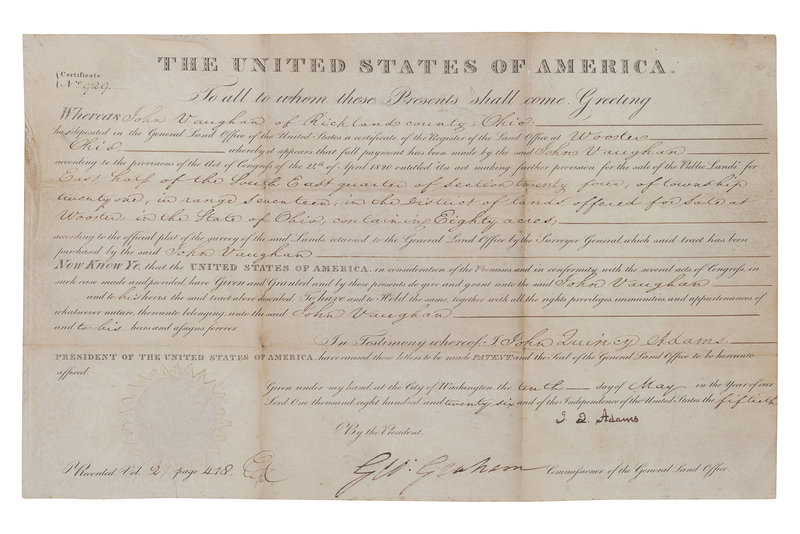 THE UNITED STATES OF AMERICA.
Certificate
No. 929
To all to whom these Presents shall come, Greeting
Whereas John Vaughan of Richland county, Ohio,
has deposited in the General Land Office of the United States a certificate of the Register of the Land Office at Wooster
Ohio, whereby it appears that full payment has been made by the said John Vaughan
according to the provisions of the Act of Congress of the 24th of April 1820 entitled "An act making further provision for the sale of the Public Lands" for
East half of the South East quarter of section twenty four, of township
twenty one, in range seventeen, in the District of lands offered for sale at
Wooster in the State of Ohio, containing Eighty acres;
according to the official plat of the survey of the said Lands returned to the General Land Office by the Surveyor General, which said tract has been
purchased by the said John Vaughan
Now Know Ye that the UNITED STATES OF AMERICA, in consideration of the Premises and in conformity with the several acts of Congress, in
such case made and provided, have Given and Granted and by these presents do give and grant unto the said John Vaughan
and to his heirs the said tract above described. To have and to Hold the same together with all the rights, privileges, immunities and appurtenances of
whatsoever nature, thereunto belonging, unto the said John Vaughan
and to his heirs and assigns forever.
In Testimony whereof I John Quincy Adams
PRESIDENT OF THE UNITED STATES OF AMERICA, have caused these letters to be made PATENT, and the Seal of the General Land Office to be hereunto
affixed.
Given under my hand at the City of Washington, the tenth day of May in the Year of our
Lord One thousand eight hundred and twenty six and of the Independence of the United States the fiftieth
J. Q. Adams
By the President.
Recorded, Vol. 2, page 418
Geo. Graham Commissioner of the General Land Office